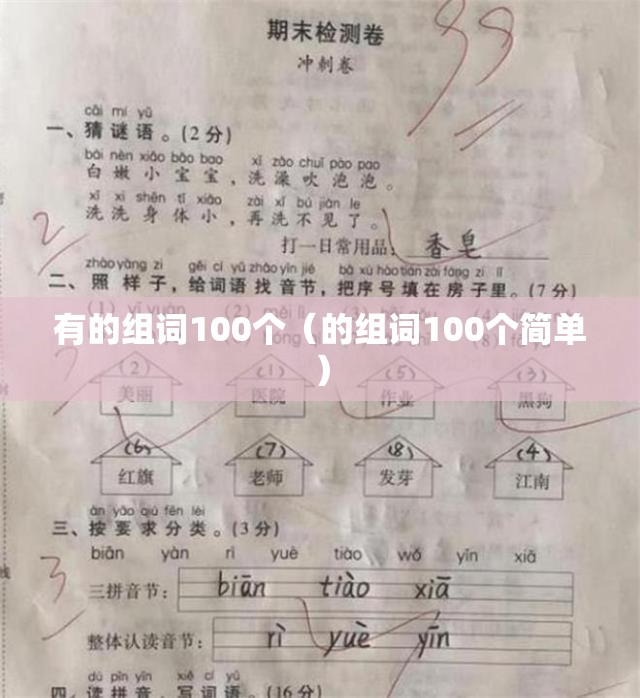 期末检测卷
冲刺卷
cāi mí yǔ
一、猜谜语。(2分)
bái nèn xiǎo bǎo bao xǐ zǎo chuī pào pao
白嫩小宝宝，洗澡吹泡泡。
xǐ xi shēn tǐ xiǎo zài xǐ bú jiàn le
洗洗身体小，再洗不见了。
2
打一日常用品：香皂
zhào yàng zi gěi cí yǔ zhǎo yīn jié bǎ xù hào tián zài fáng zi lǐ
二、照样子，给词语找音节，把序号填在房子里。(7分)
(1) yī yuàn (2) měi lì
有的组词100个（的组词100个简单
）
(2) (1) (5) (3)
美丽 医院 作业 黑狗
(6) (7) (8) (4)
红旗 老师 发芽 江南
àn yāo qiú fēn lèi
三、按要求分类。(3分)
biān yàn rì yuè tiào wǒ yīn xiā
3
三拼音节： biān tiào xiā
整体认读音节： rì yuè yīn
dú pīn yīn xiě cí yǔ
四、读拼音，写词语。(16分)